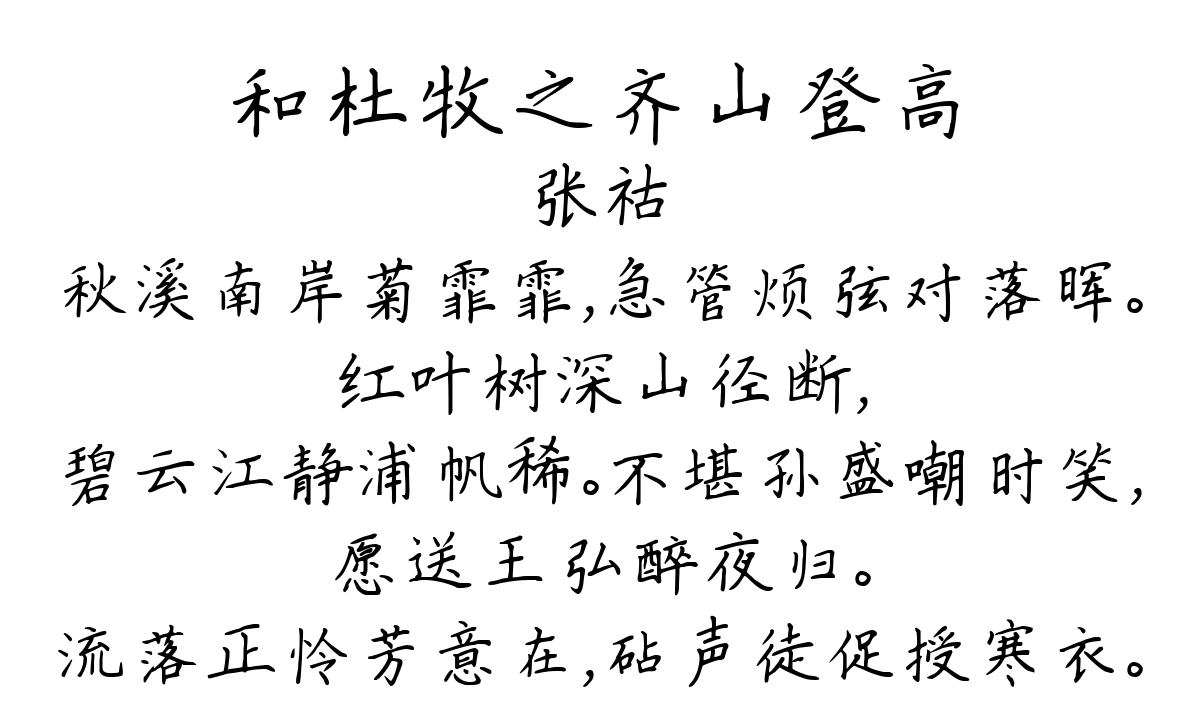 和杜牧之齐山登高
张祜
秋溪南岸菊霏霏,急管烦弦对落晖。
红叶树深山径断,
碧云江静浦帆稀。不堪孙盛嘲时笑,
愿送王弘醉夜归。
流落正怜芳意在,砧声徒促授寒衣。